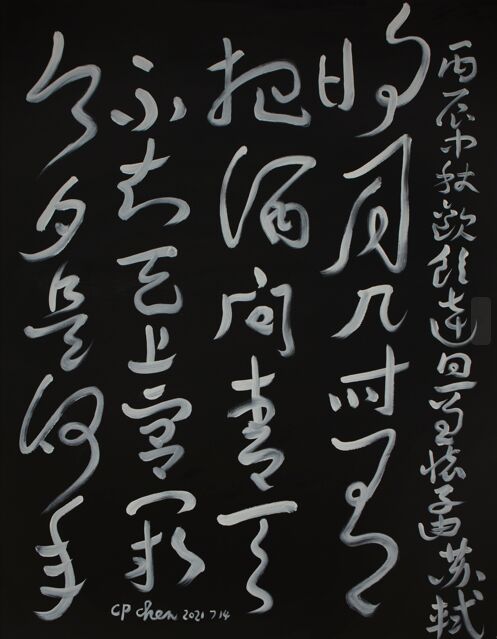 丙辰中秋歡飲達旦懷子由蘇軾
明月几时有
把酒問青天
不知天上宮闕
今夕是何年
CP Chen 2021 7 14